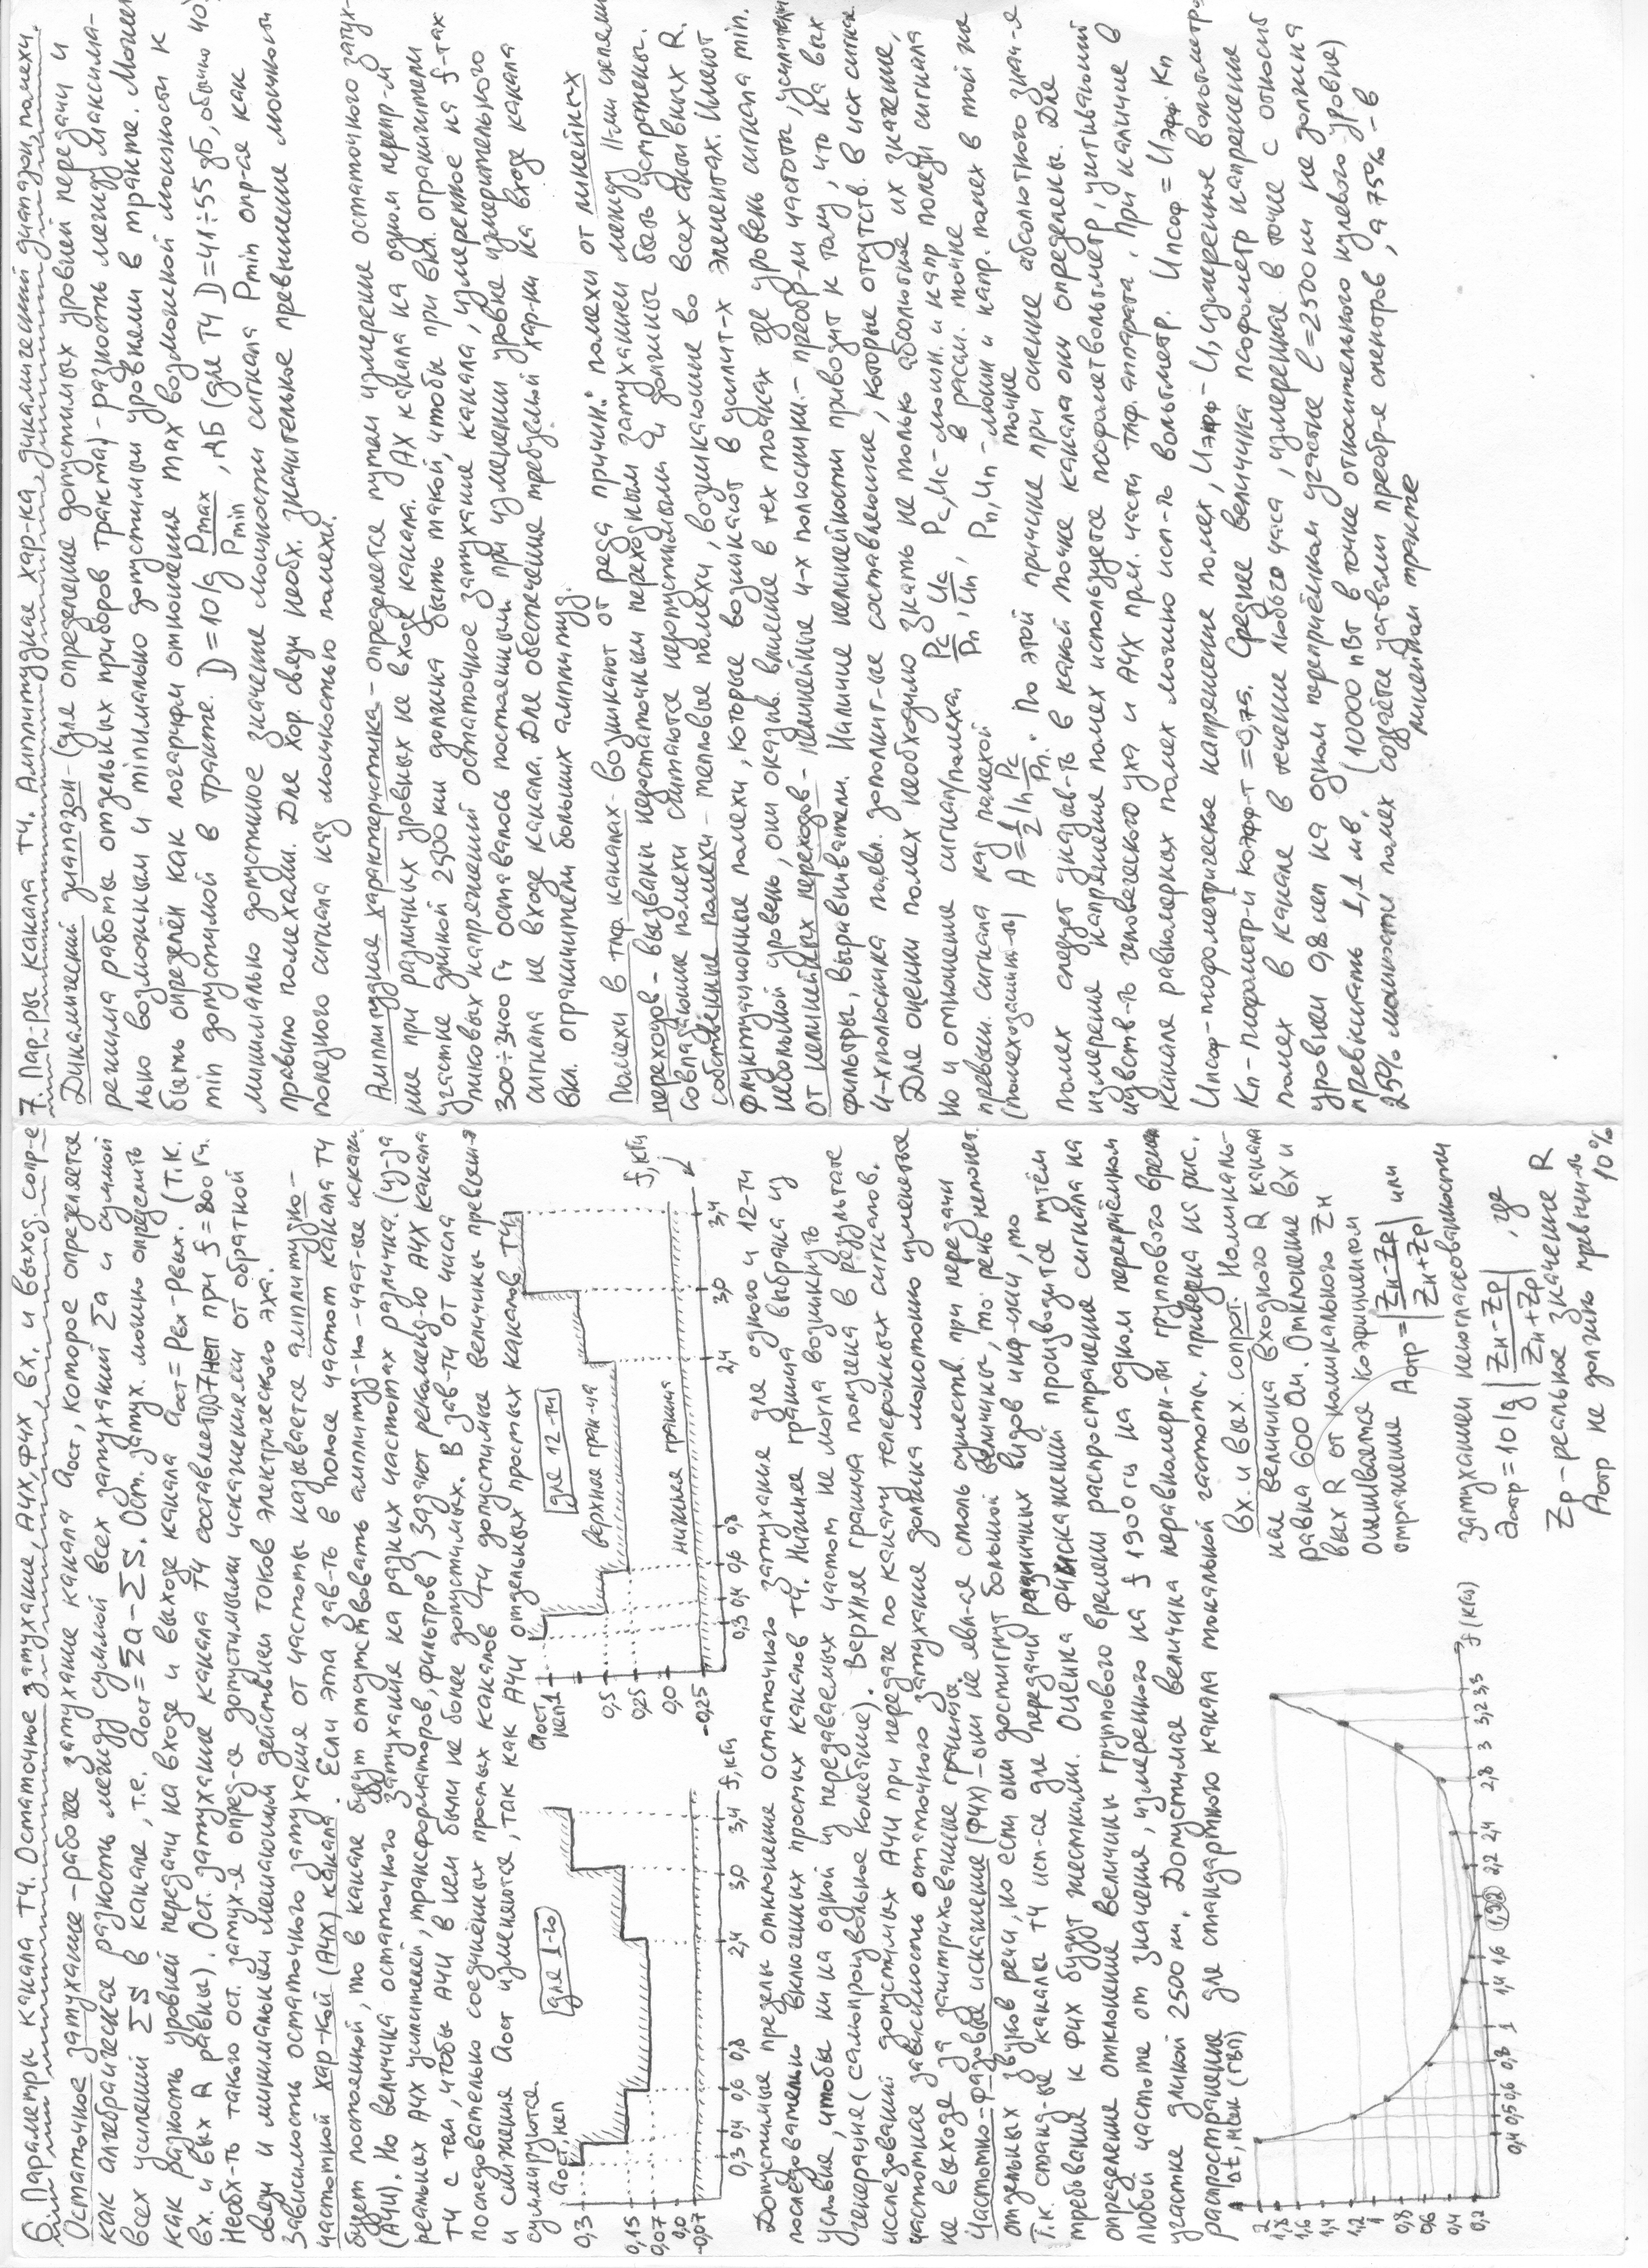 6. Параметры канала ТЧ. Остаточное затухание, АЧХ, ФЧХ, вх. и выход. сопр-е
Остаточное затухание - рабочее затухание канала Aост, которое определяется
как алгебраическая разность между суммой всех затуханий Σa и суммой
всех усилений ΣS в канале, т.е. aост = Σa - ΣS. Ост. затух. можно определить
как разность уровней передачи на входе и выходе канала aост = Рвх - Рвых. (т.к.
вх. и вых R равны). Ост. затухание канала ТЧ составляет 0,7 Неп при f = 800 Гц.
Необх-ть такого ост. затух-я опред-ся допустимыми искажениями от обратной
связи и минимальным мешающим действием токов электрического эха.
Зависимость остаточного затухания от частоты называется амплитудно-
частотной хар-кой (АЧХ) канала. Если эта зав-ть в полосе частот канала ТЧ
будет постоянной, то в канале будут отсутствовать амплитуд-но-част-ые искаж.
(АЧИ). Но величина остаточного затухания на разных частотах различна. (из-за
реальных АЧХ усилителей, трансформаторов, фильтров) Задают рекоменд-ю АЧХ канала
ТЧ с тем, чтобы АЧИ в нем были не более допустимых. В зав-ти от числа
последовательно соединённых простых каналов ТЧ допустимые величины превыш-я
и снижения Aост изменяются, так как АЧИ отдельных простых каналов ТЧ
суммируются.
для 1-го
Aост, неп
0,3
0,15
0,07
0,0
-0,07
0,3 0,4 0,6 0,8 2,4 3,0 3,4 f, кГц
для 12-ти
Aост
неп 1
0,5
0,25
0,0
-0,25
верхняя гран-ца
нижняя граница
0,3 0,4 0,6 0,8 2,4 3,0 3,4 f, кГц
Допустимые пределы отклонение остаточного затухание для одного и 12-ти
последовательно включенных простых каналов ТЧ. Нижняя граница выбрана из
условия, чтобы ни на одной из передаваемых частот не могла возникнуть
генерация (самопроизвольное колебание). Верхняя граница получена в результате
исследований допустимых АЧИ при передаче по каналу телефонных сигналов.
частотная зависимость остаточного затухание должна монотонно изменяется
не выходя за заштрихованные границы.
Частотно-фазовые искажение (ФЧХ) - они не явл-ся столь существ. при передачи
отдельных звуков речи, но если они достигнут большой величины, то речь непонят.
Т.к. станд-ые каналы ТЧ исп-ся для передачи различных видов инф-ции, то
требования к ФЧХ будут жесткими. Оценка ФЧ искажений производится путём
определение отклонение величины группового времени распространение сигнала на
любой частоте от значения, измеренного на f 1900 гц на одном переприёмном
участке длиной 2500 км. Допустимая величина неравномерн-ти группового времени
распостранение для стандартного канала тональной частоты, приведена на рис.
Δt, мсек (ГВП)
2
1,8
1,6
1,4
1,2
1
0,8
0,6
0,4
0,2
0,4 0,5 0,6 0,8 1 1,4 1,6 1,92 2,2 2,4 2,8 3 3,2 3,3 f (кГц)
Вх. и вых. сопрот. Номиналь-
ная величина входного R канала
равна 600 Ом. Отклонение вх и
вых R от номинального Zн
оценивается коэфициентом
отражение Aотр = |Zн - Zр / Zн + Zр| или
затуханием несогласованности
aотр = 10 lg |Zн - Zр / Zн + Zр|, где
Zр - реальное значение R
Aотр не должно превышать
10%
7. Пар-ры канала ТЧ. Амплитудная хар-ка, динамический диапазон, помехи.
Динамический диапазон - (для определение допустимых уровней передачи и
режима работы отдельных приборов тракта) - разность между максима-
льно возможным и минимально допустимым уровнем в тракте. Может
быть определён как логарифм отношения max возможной мощности к
min допустимой в тракте. D = 10 lg Pmax / Pmin, дБ (для ТЧ D = 41÷55 дБ, обычно 40).
минимально допустимое значение мощности сигнала Pmin опр-ся как
правило помехами. Для хор. связи необх. значительное превышение мощности
полезного сигнала над мощностью помехи.
Амплитудная характеристика - определяется путем измерение остаточного затух-
ние при различных уровнях не входе канала. АХ канала на одном перепр-м
участке длиной 2500 км должна быть такой, чтобы при вкл. ограничители
пиковых напряжений остаточное затухание канала, измеренное на f-тах
300÷3400 Гц оставалось постоянным при изменении уровня измерительного
сигнала не входе канала. Для обеспечение требуемой хар-ки на входе канала
вкл. ограничители больших амплитуд.
Помехи в тлф каналах - возникают от ряда причин: помехи от линейных
переходов - вызваны недостаточным переходным затуханием между ||-ми цепями
совпадающие помехи считаются недопустимыми и должны быть устранены.
собственные помехи - тепловые помехи, возникающие во всех активных R.
Флуктуационные помехи, которые возникают в усилит-х элементах. Имеют
небольшой уровень, они оказыв. влияние в тех точках где уровень сигнала min.
от нелинейных переходов - нелинейные ч-х полюсники - преобр-ли частоты, усилители,
фильтры, выравниватели. Наличие нелинейности приводит к тому, что на вых
ч-хполюсника появл. дополнит-ые составляющие, которые отсутств. в исх сигнале.
Для оценки помех необходимо знать не только абсолютное их значение,
но и отношение сигнал/помеха, Pс/Pп, Uс/Uп, Pс, Uс - мощн. и напр полезн сигнала
в рассм. точке
превыш. сигнала над помехой
Pп, Uп - мощн и напр. помех в той же
точке
(помехозащит-ть) A = ½ ln Pс/Pп. По этой причине при оценке абсолютного знач-я
помех следует указыв-ть в какой точке канала они определены. Для
измерения напряжения помех используется псофометвольтметр, учитывающий
чувств-ть человеческого уха и АЧХ прм. части тлф. аппарата. При наличие в
канале равномерных помех можно исп-ть вольтметр. Uпсоф = Uэфф · Kп
Uпсоф - псофометрическое напряжение помех, Uэфф - U, измеренное вольтметр.
Kп - псофометр-й коэфф-т = 0,75. Среднее величина псофометр напряжение
помех в канале в течение любого часа, измеренная в точке с относит
уровнем 0,8 неп на одном переприёмном участке l = 2500 км не должна
превышать 1,1 мв. (10000 пВт в точке относительного нулевого уровня)
25% мощности помех создаётся устр-вами преобр-е спектров, а 75% - в
линейном тракте